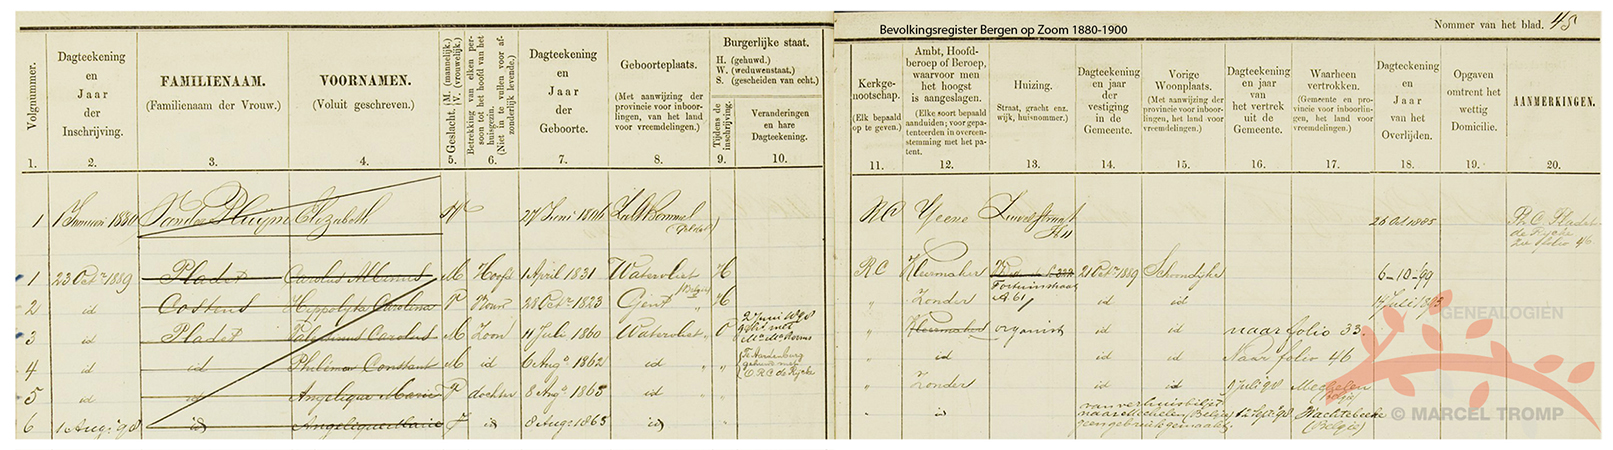 Bevolkingsregister Bergen op Zoom 1880-1900
Nommer van het blad. 45
Volgnummer.
1.
Dagteekening
en
Jaar
der
Inschrijving.
2.
FAMILIENAAM.
(Familienaam der Vrouw.)
3.
VOORNAMEN.
(Voluit geschreven.)
4.
Geslacht. (M. (mannelijk.)
(V. (vrouwelijk.)
5.
Betrekking van elken per-
soon tot het hoofd van het
huisgezin.
(Niet in te vullen voor af-
zonderlijk levende.)
6.
Dagteekening
en
Jaar
der
Geboorte.
7.
Geboorteplaats.
(Met aanwijzing der
provincie voor inboor-
lingen, van het land
voor vreemdelingen.)
8.
Burgerlijke staat.
H. (gehuwd.)
W. (weduwenstaat.)
S. (gescheiden van echt.)
Tijdens de
inschrijving.
9.
Veranderingen
en hare
Dagteekening.
10.
Kerkge-
nootschap.
(Elk bepaald
op te geven.)
11.
Ambt, Hoofd-
beroep of Beroep,
waarvoor men
het hoogst
is aangeslagen.
(Elke soort bepaald
aanduiden; voor gepa-
tenteerden in overeen-
stemming met het pa-
tent.
12.
Huizing.
Straat, gracht enz.
wijk, huisnommer.)
13.
Dagteekening
en jaar
der
vestiging
in de
Gemeente.
14.
Vorige
Woonplaats.
(Met aanwijzing der
provincie voor inboor-
lingen, het land voor
vreemdelingen.)
15.
Dagteekening
en jaar
van
het vertrek
uit de
Gemeente.
16.
Waarheen
vertrokken.
(Gemeente en pro-
vincie voor inboorlin-
gen, het land voor
vreemdelingen.)
17.
Dagteekening
en
Jaar
van het
Overlijden.
18.
Opgaven
omtrent het
wettig
Domicilie.
19.
AANMERKINGEN.
20.
1 1 Januari 1880 Van der Pluym Elizabeth 27 Juni 1806 Zalt Bommel
RC Geene Zuivelstraat 26 Oct 1885
1 23 Octr 1889 Pladet Carolus M Hoofd 1 April 1831 Watervliet H
RC Kleermaker 21 Octr 1889 Schoondijke 6-10-'99
Fortuinstraat
2 id Hippolyta Carolina 28 Oct 1823 Gent H
" Zonder A 61 id id
3 id Pladet Carolus M Zoon 11 Julij 1860 Watervliet " O
" Kleermaker organist id id naar folio 33.
4 id id Constant M id 6 Aug. 1862 id "
" id id id Naar folio 46
5 id id Angelique Marie dochter 8 Aug. 1865 id "
" Zonder id id Mechelen
6 1 Aug. 98 id Angelique Marie id 8 Aug. 1865 id
" id naar Mechelen (België) Wachtebeke
(België)
GENEALOGIËN
© MARCEL TROMP